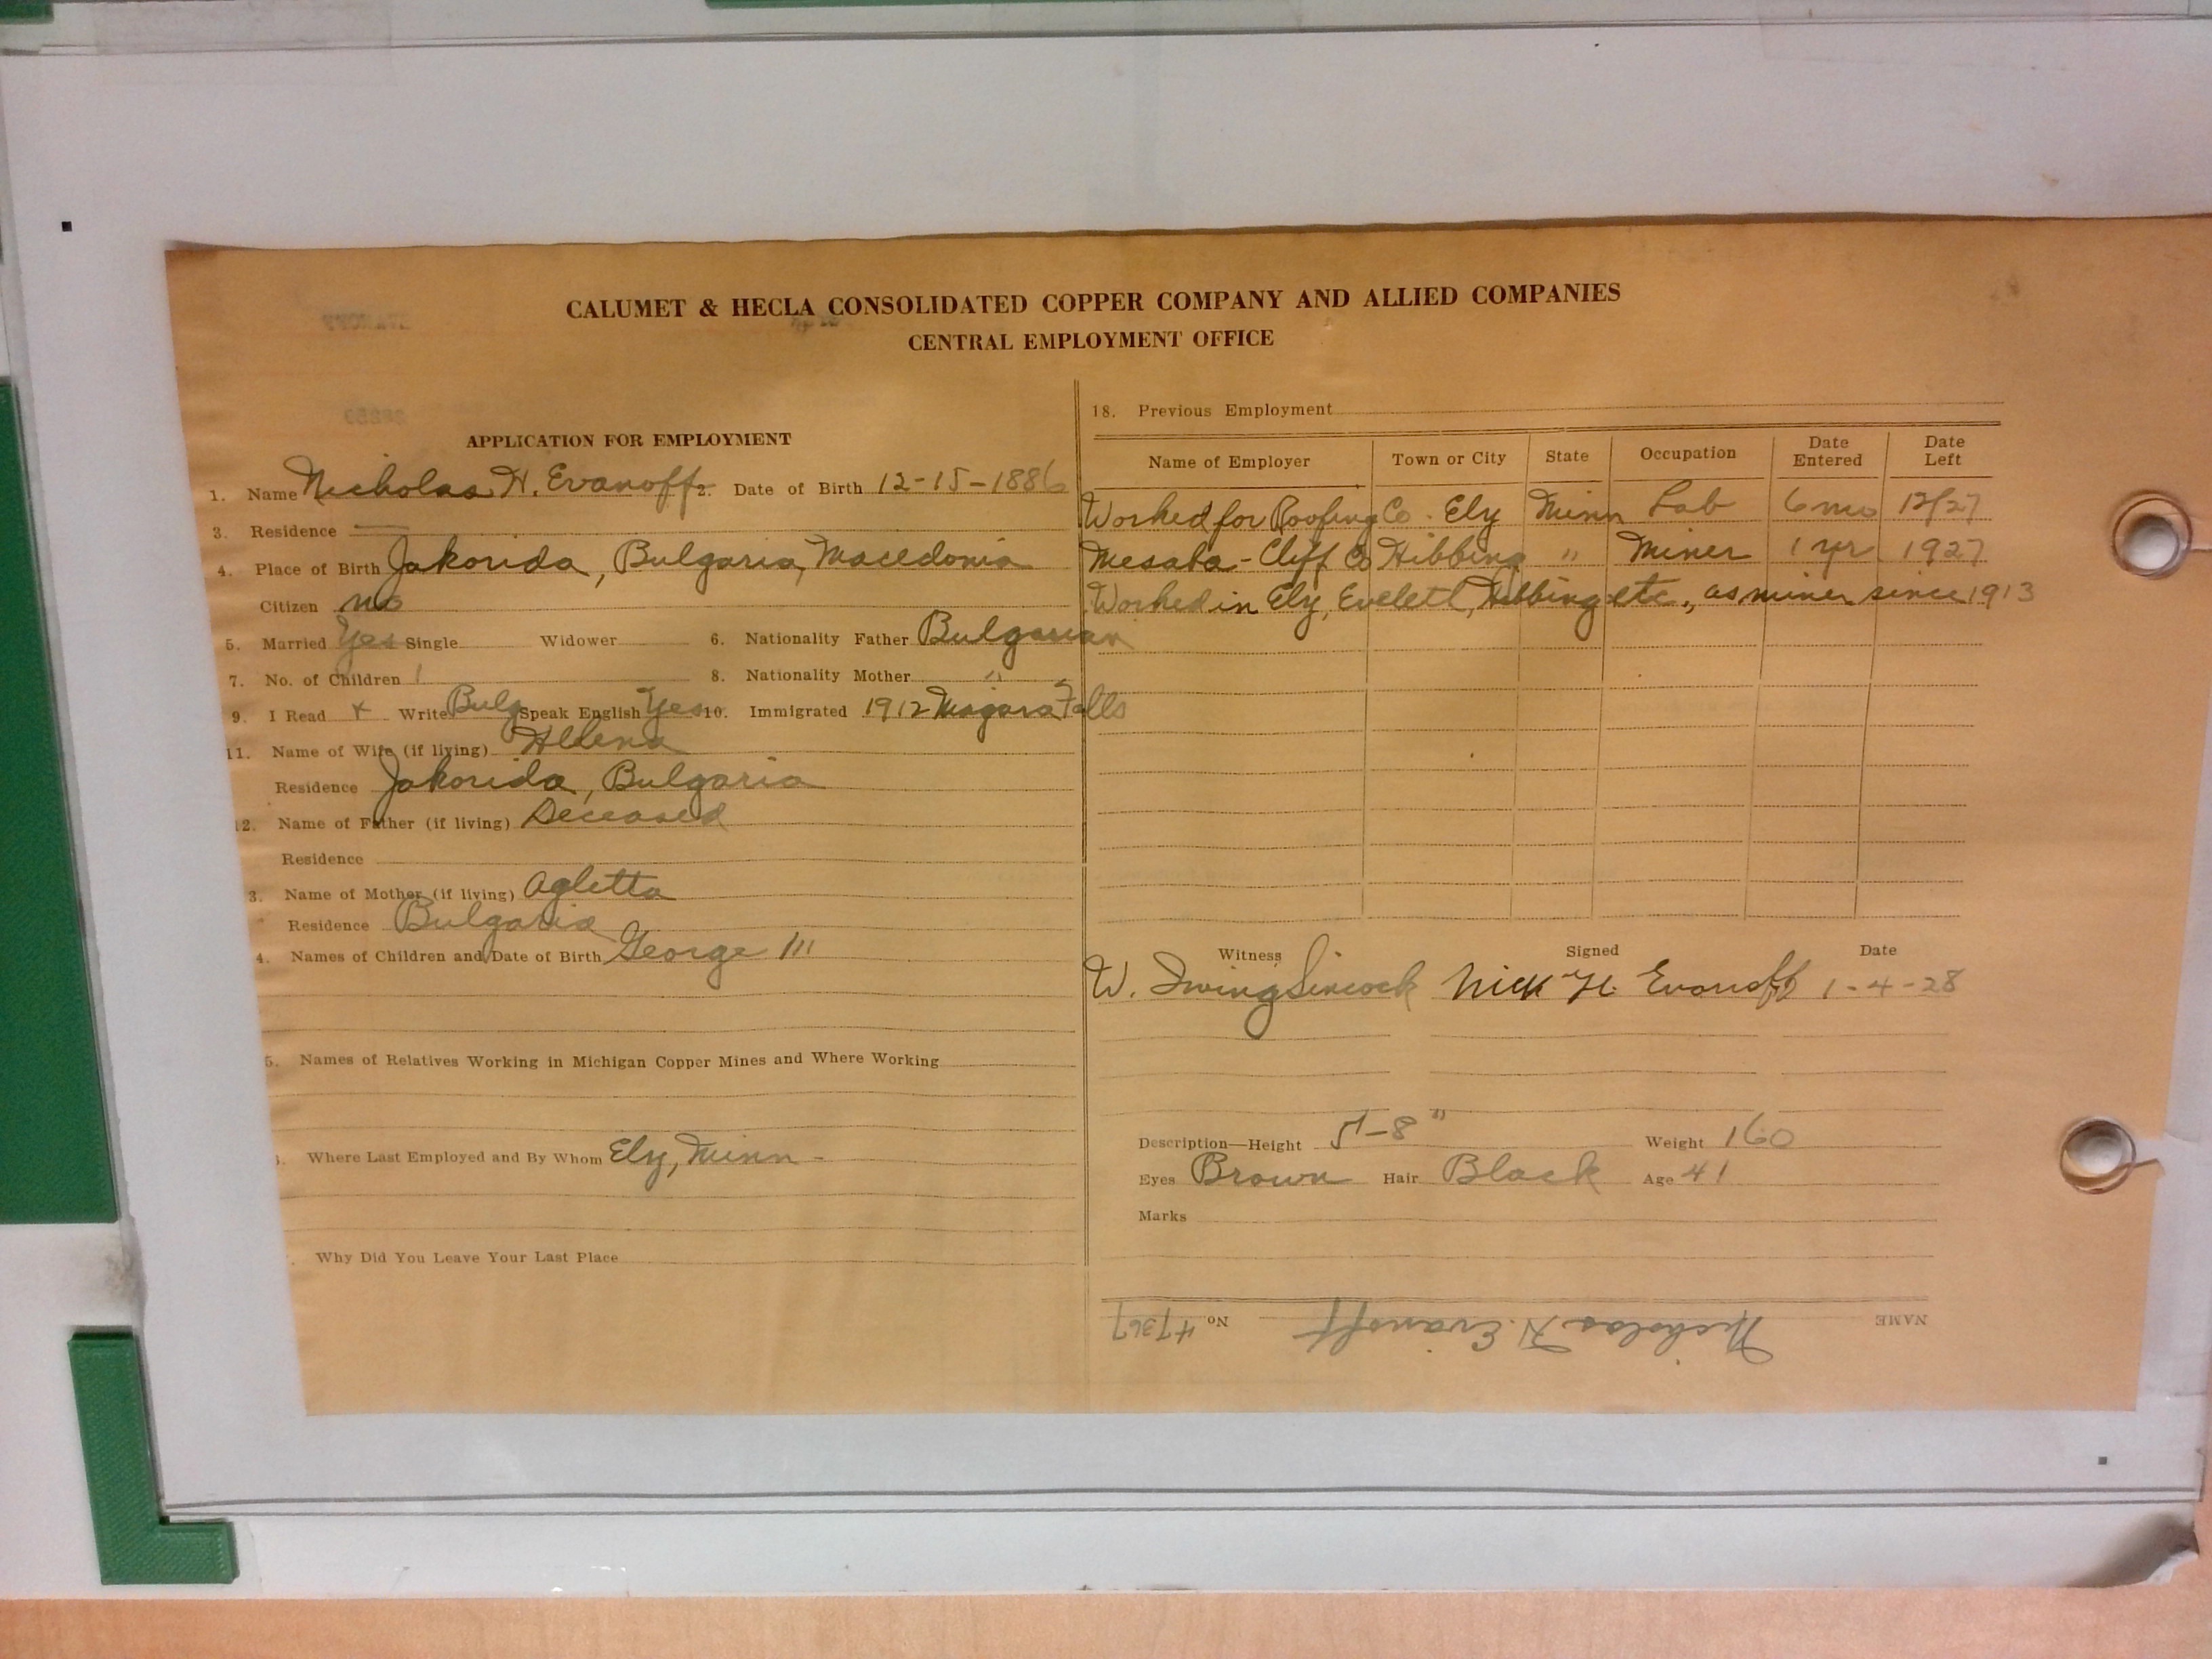 CALUMET & HECLA CONSOLIDATED COPPER COMPANY AND ALLIED COMPANIES
CENTRAL EMPLOYMENT OFFICE
APPLICATION FOR EMPLOYMENT
1. Name Nicholas H. Evanoff 2. Date of Birth 12-15-1886
3. Residence
4. Place of Birth Jakorida, Bulgaria, Macedonia
Citizen no
5. Married Yes Single Widower 6. Nationality Father Bulgarian
7. No. of Children 1 8. Nationality Mother "
9. I Read x Write Bulg Speak English Yes 10. Immigrated 1912 Niagara Falls
11. Name of Wife (if living) Helena
Residence Jakorida, Bulgaria
12. Name of Father (if living) Deceased
Residence
3. Name of Mother (if living) Agletta
Residence Bulgaria
4. Names of Children and Date of Birth George 111
5. Names of Relatives Working in Michigan Copper Mines and Where Working
Where Last Employed and By Whom Ely, Minn -
Why Did You Leave Your Last Place
18. Previous Employment
Name of Employer Town or City State Occupation Date Entered Date Left
Worked for Roofing Co. Ely Minn Lab 6 mo 12/27
Mesaba-Cliff Co Hibbing " Miner 1 yr. 1927
Worked in Ely, Eveleth, Hibbing etc., as miner since 1913
Witness Signed Date
W. Irving Sincock Nick H. Evanoff 1-4-28
Description—Height 5'-8" Weight 160
Eyes Brown Hair Black Age 41
Marks
NAME Nicholas H. Evanoff No. 47367